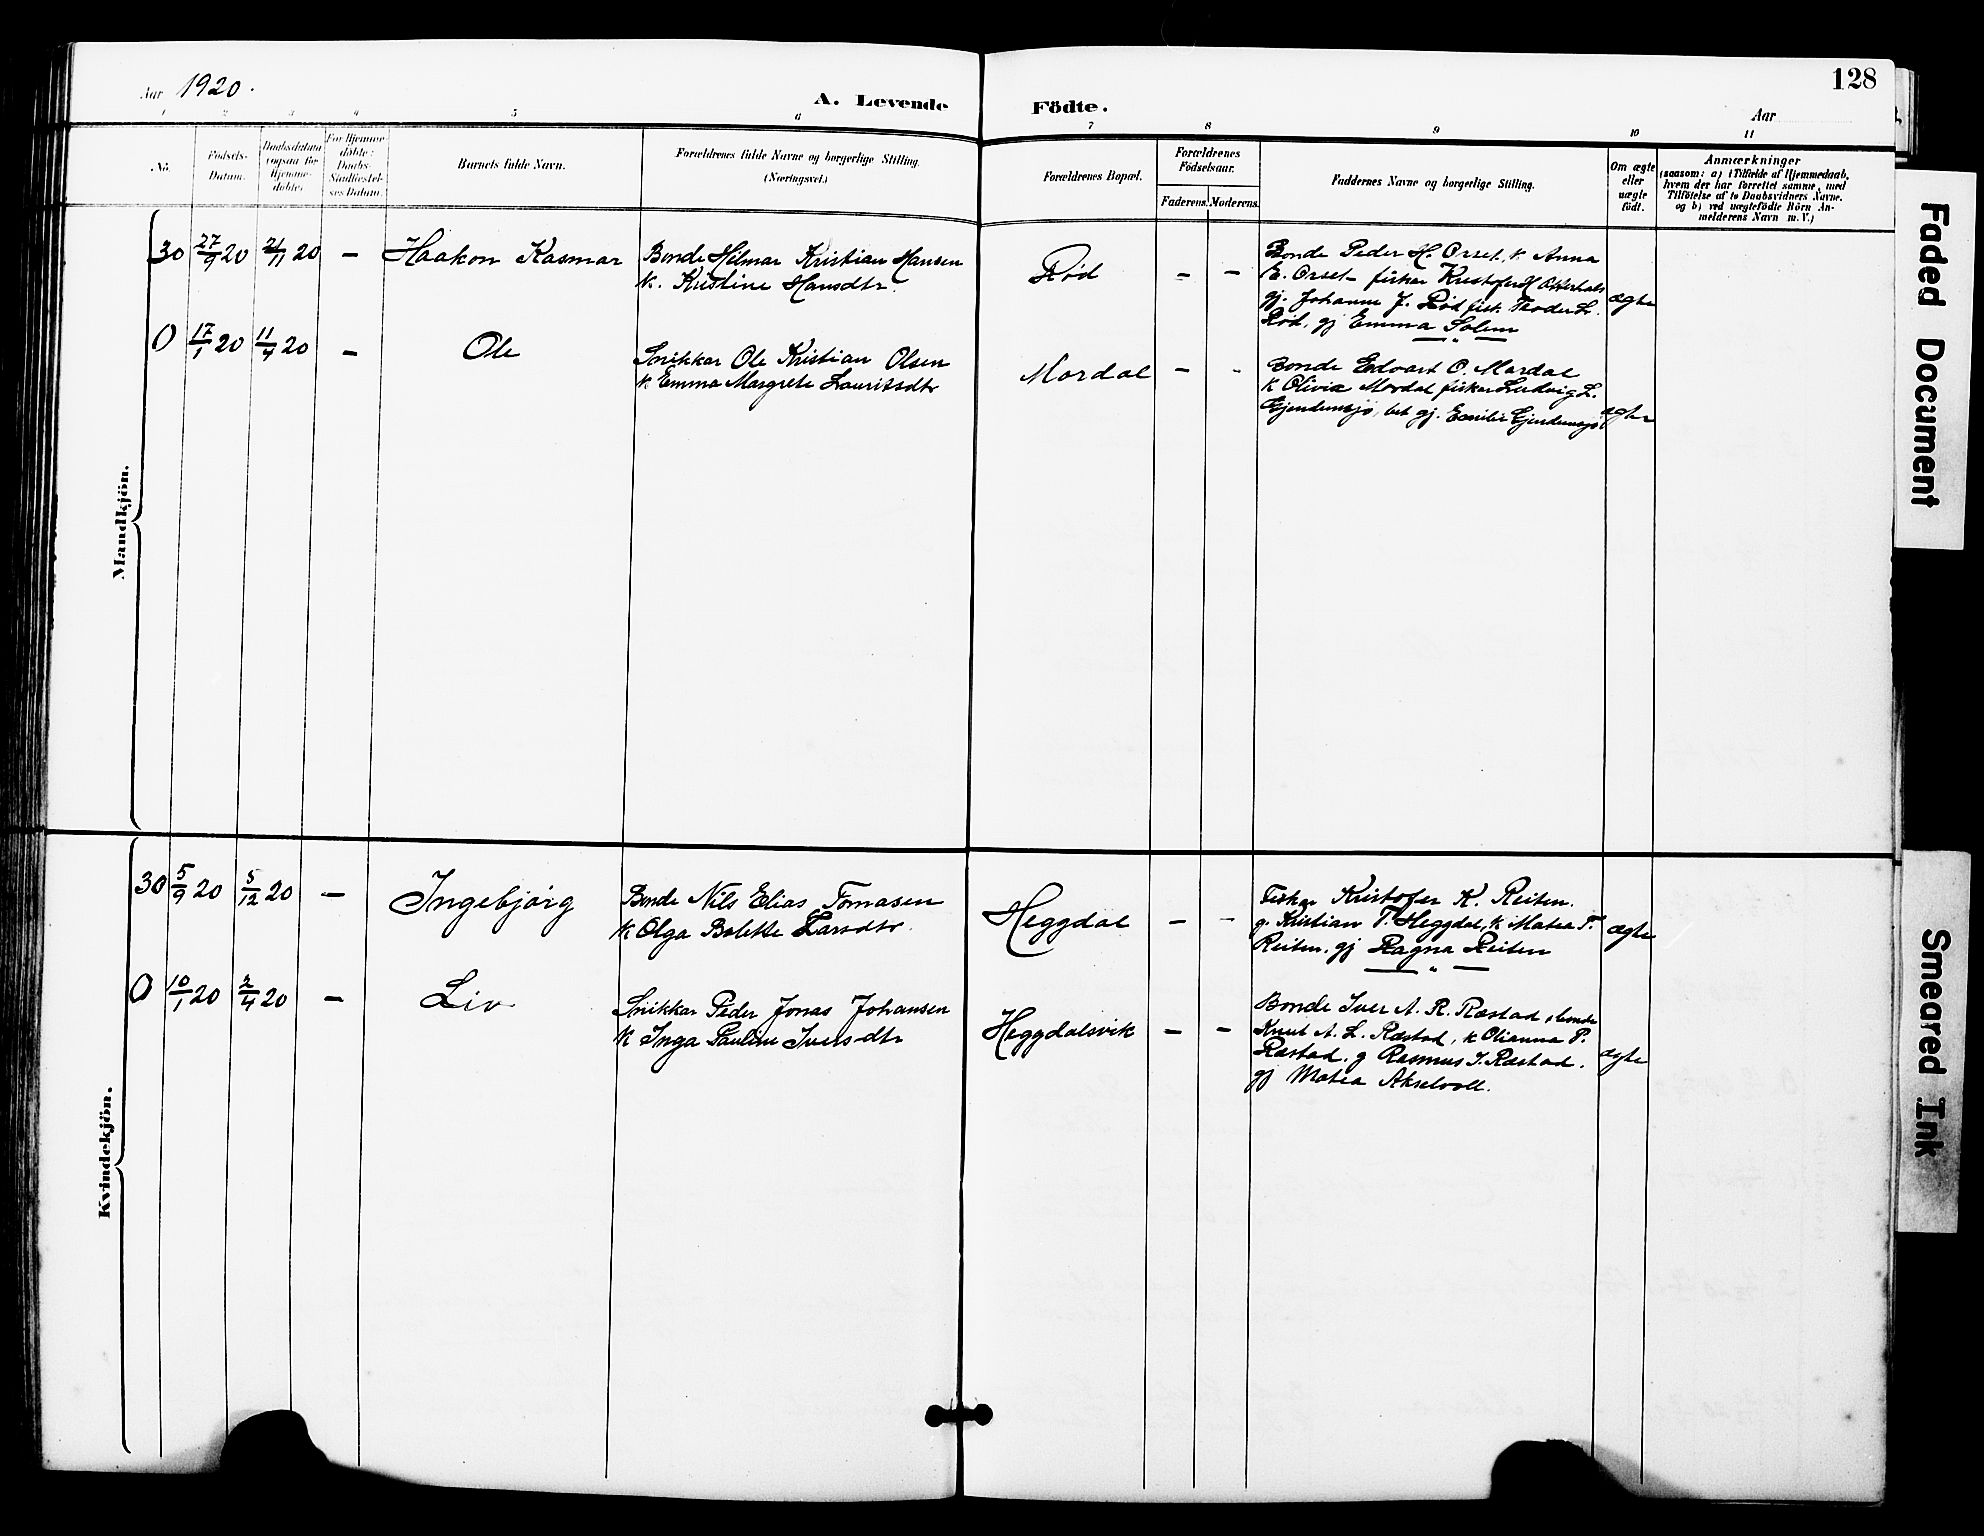 128
Aar 1920.
A. Levende Födte.
Aar
1 2 3 4 5 6 7 8 9 10 11
No.
Födsels-
Datum.
Daabsdatum
(ogsaa for
Hjemme-
döbte).
For Hjemme-
döbte:
Daabs-
Stadfæstel-
ses Datum.
Barnets fulde Navn.
Forældrenes fulde Navne og borgerlige Stilling.
(Næringsvei.)
Forældrenes Bopæl.
Forældrenes
Födselsaar.
Faderens. Moderens.
Faddernes Navne og borgerlige Stilling.
Om ægte
eller
uægte
födt.
Anmærkninger
(saasom: a) i Tilfælde af Hjemmedaab,
hvem der har forrettet samme, med
Tilföielse af to Daabsvidners Navne,
og b) ved uægtefödte Börn An-
melderens Navn m. V.)
Mandkjön.
30 27/9 20 21/11 20 – Haakon Kasmar
Bonde Hilmar Kristian Hansen
k. Kristine Hansdtr.
Rød – –
Bonde Peder H. Orset, k. Anna
E. Orset fiskar Kristofer H
gj. Johanne J. Rød fisk. L.
Rød, gj Emma Solem
ægte
0 17/1 20 11/4 20 – Ole
Snikkar Ole Kristian Olsen
k. Emma Margrete Lauritsdtr
Mordal – –
Bonde Edvart O. Mordal
k Olivia Mordal fiskar Ludvig L.
Gjendemsjø, gj. Emilie Gjendemsjø
ægte
Kvindekjön.
30 5/9 20 5/12 20 – Ingebjørg
Bonde Nils Elias Tomasen
k Olga Bolette Larsdtr.
Heggdal – –
Fiskar Kristofer K. Reiten.
g. Kristian T. Heggdal, k Matea T.
Reiten, gj Ragna Reiten
ægte
0 10/1 20 2/4 20 – Liv
Snikkar Peder Jonas Johansen
k Inga Pauline Iversdtr
Heggdalsvik – –
Bonde Iver A. R. Ræstad, bonde
Knut A. L. Ræstad, k Olianna P.
Ræstad, g Rasmus I. Ræstad.
gj Matea Akselvoll.
ægte
Faded Document
Smeared Ink